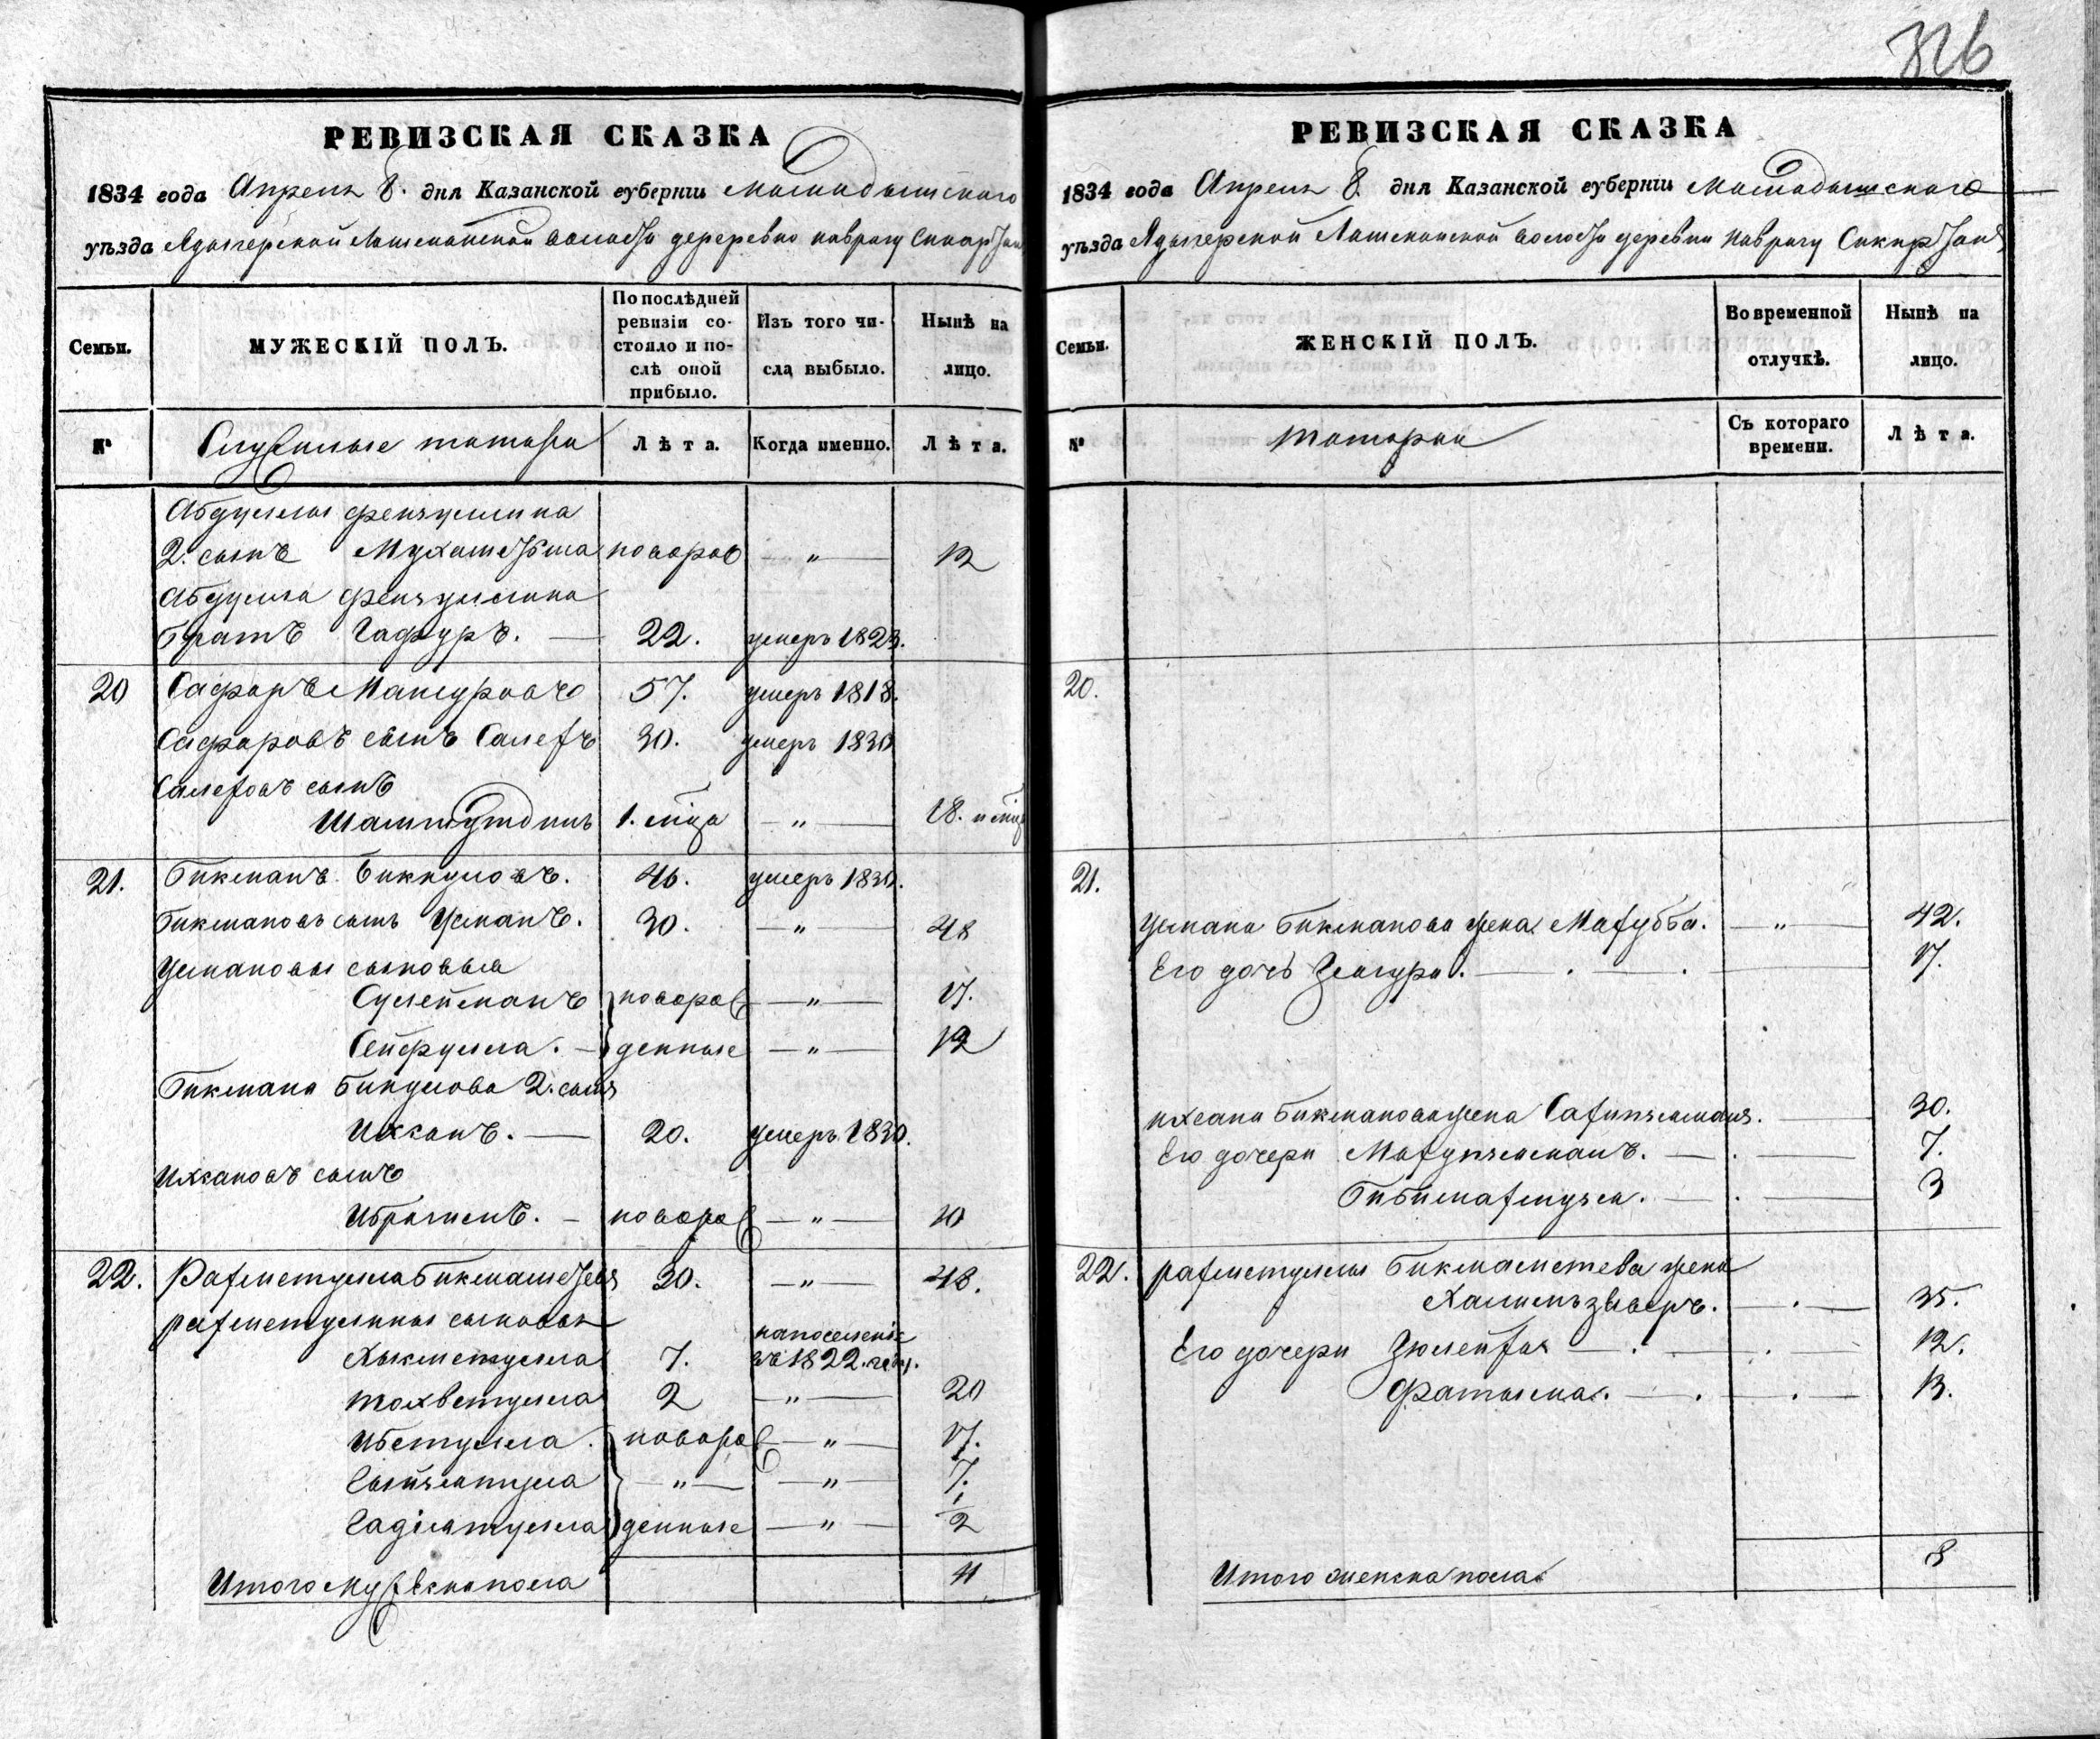 326
РЕВИЗСКАЯ СКАЗКА
1834 года Апреля 8. дня Казанской губерніи Мамадышскаго
уѣзда Адаегерской Лашманской волости дереревни наврагу
МУЖЕСКІЙ ПОЛЪ.
Семьи.
По послѣдней ревизіи состояло и послѣ оной прибыло.
Изъ того числа выбыло.
Нынѣ на лицо.
№
Служилые татары
Лѣта.
Когда именно.
Лѣта.
Абдуллы Фейзуллина
2. сынъ Мухаметша новорож — " — 12
Абдулла Фейзуллина
братъ Гафуръ. — 22. умеръ 1823.
20 Сафаръ Мансуровъ 57. умеръ 1818.
Сафаровъ сынъ Салехъ 30. умеръ 1830
Салеховъ сынъ
1. мца — " — 18. и мца
21. Бикманъ Биккуловъ. 46. умеръ 1830.
Бикмановъ сынъ Усманъ. 30. — " — 48
Усмановы сыновья
Сулейманъ новорож — " — 17.
Сейфулла. — денные — " — 12
Бикмана Бикулова 2. сынъ
Ихсанъ. — 20. умеръ 1830.
Ихсановъ сынъ
Ибрагимъ. — новорож — " — 10
22. Рахметулла Бикметевъ 30. — " — 48.
рахметуллины сыновья
Хыкметулла 7. на поселеніе въ 1822. году.
Тохветулла 2 — " — 20
Ибетулла. новорож — " — 17.
— " — — " — 7.
денные — " — 1/2
Итого мужеска пола 11
РЕВИЗСКАЯ СКАЗКА
1834 года Апреля 8 дня Казанской губерніи Мамадышскаго
уѣзда Адаегерской Лашманской волости деревни наврагу
Семьи.
ЖЕНСКІЙ ПОЛЪ.
Во временной отлучкѣ.
Нынѣ на лицо.
№
татарки
Съ котораго времени.
Лѣта.
20.
21.
Усмана Бикманова жена Махубба. — " — 42.
Его дочь 17.
ихсана Бикманова жена 30.
Его дочери 7.
3
22. рахметуллы Бикмаметева жена
35.
Его дочери 12.
Фатыма. 13.
Итого женска пола 8